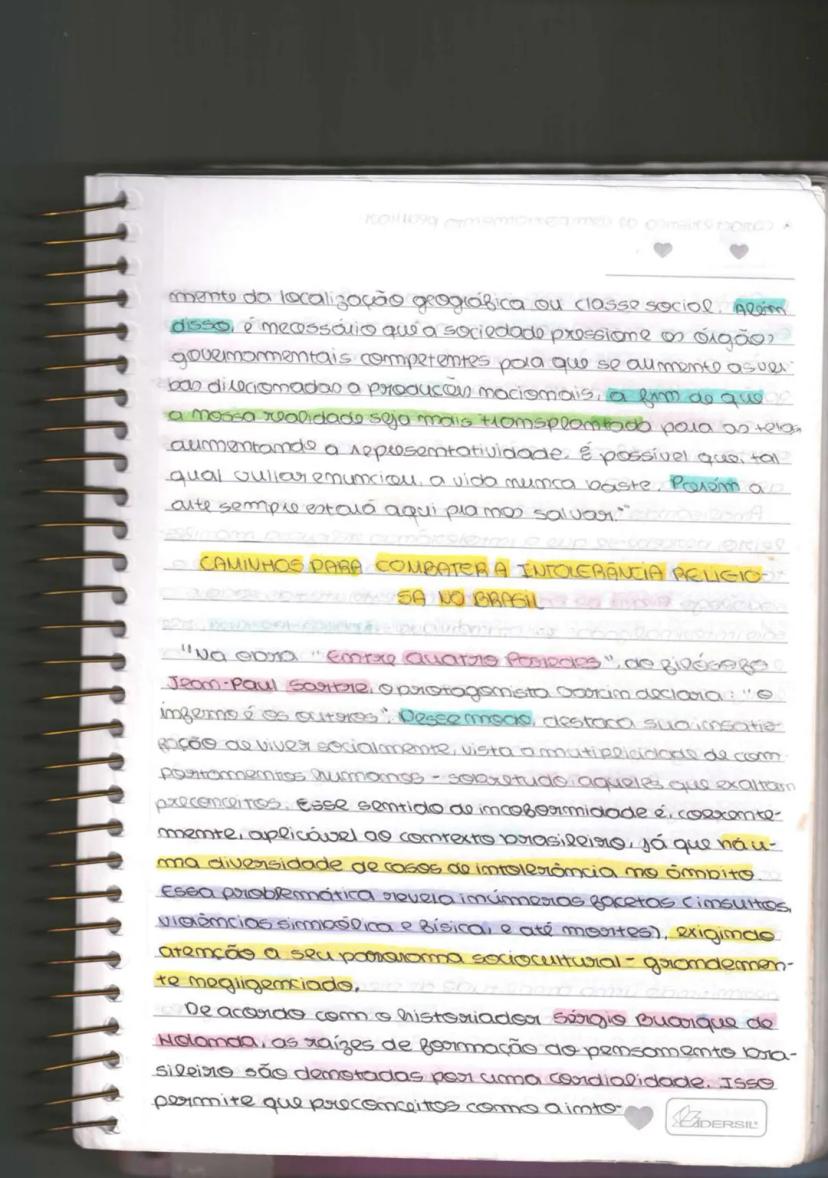 mente da localização geográfica ou classe social. Além
disso, é necessário que a sociedade pressione os órgãos
governamentais competentes para que se aumente as ver-
bas direcionadas a produções nacionais, a fim de que
a nossa realidade seja mais transplantada para as telas
aumentando a representatividade. É possível que, tal
qual Gullar enunciou, a vida nunca baste. Porém a
arte sempre estará aqui pra nos salvar."
CAMINHOS PARA COMBATER A INTOLERÂNCIA RELIGIO-
SA NO BRASIL
"Na obra "Entre Quatro Paredes", do filósofo
Jean-Paul Sartre, o protagonista Garcim declara: "o
inferno é os outros". Desse modo, destaca sua insatis-
fação de viver socialmente, vista a mutiplicidade de com-
portamentos humanos - sobretudo aqueles que exaltam
preconceitos. Esse sentido de incoformidade é, coerente-
mente, aplicável ao contexto brasileiro, já que há u-
ma diversidade de casos de intolerância no âmbito.
Essa problemática revela inúmeras facetas (insultos,
violências simbólica e física, e até mortes), exigindo
atenção a seu panorama sociocultural - grandemen-
te negligenciado.
De acordo com o historiador Sérgio Buarque de
Holanda, as raízes de formação do pensamento bra-
sileiro são denotadas por uma cordialidade. Isso
permite que preconceitos como a into-
DERSIL